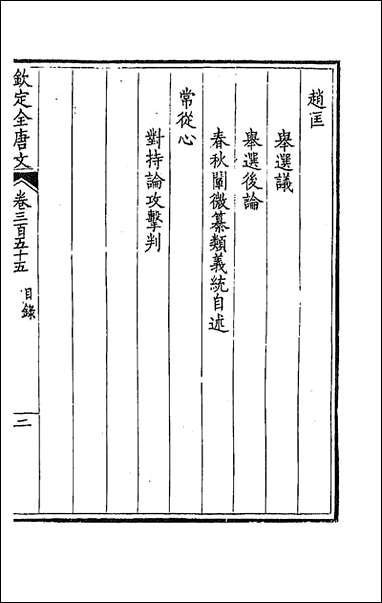 趙匡
舉選議
舉選後論
春秋闡微纂類義統自述
常從心
對持論攻擊判
欽定全唐文 卷三百五十五 目錄 二